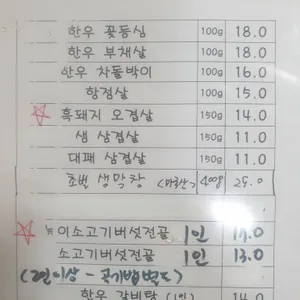 한우 꽃등심 100g 18.0
한우 부채살 100g 18.0
한우 차돌박이 100g 16.0
항정살 100g 15.0
흑돼지 오겹살 150g 14.0
생 삼겹살 150g 11.0
대패 삼겹살 150g 11.0
초벌 생막창 400g 25.0
이소고기버섯전골 1인
소고기버섯전골 1인 13.0
한우 갈비탕 (1인